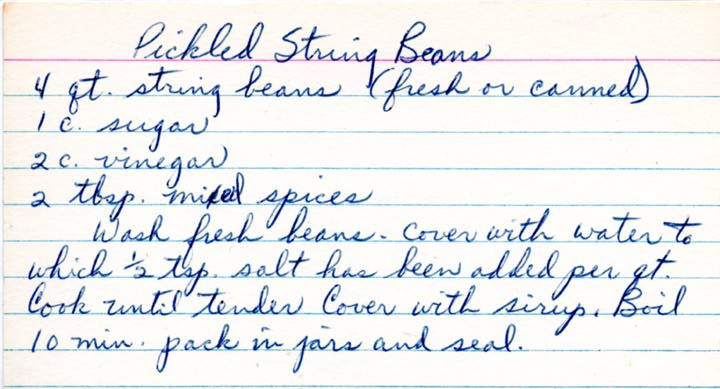 Pickled String Beans
4 qt. string beans (fresh or canned)
1 c. sugar
2 c. vinegar
2 tbsp. mixed spices
Wash fresh beans. Cover with water to
which ½ tsp. salt has been added per qt.
Cook until tender Cover with sirup. Boil
10 min. pack in jars and seal.